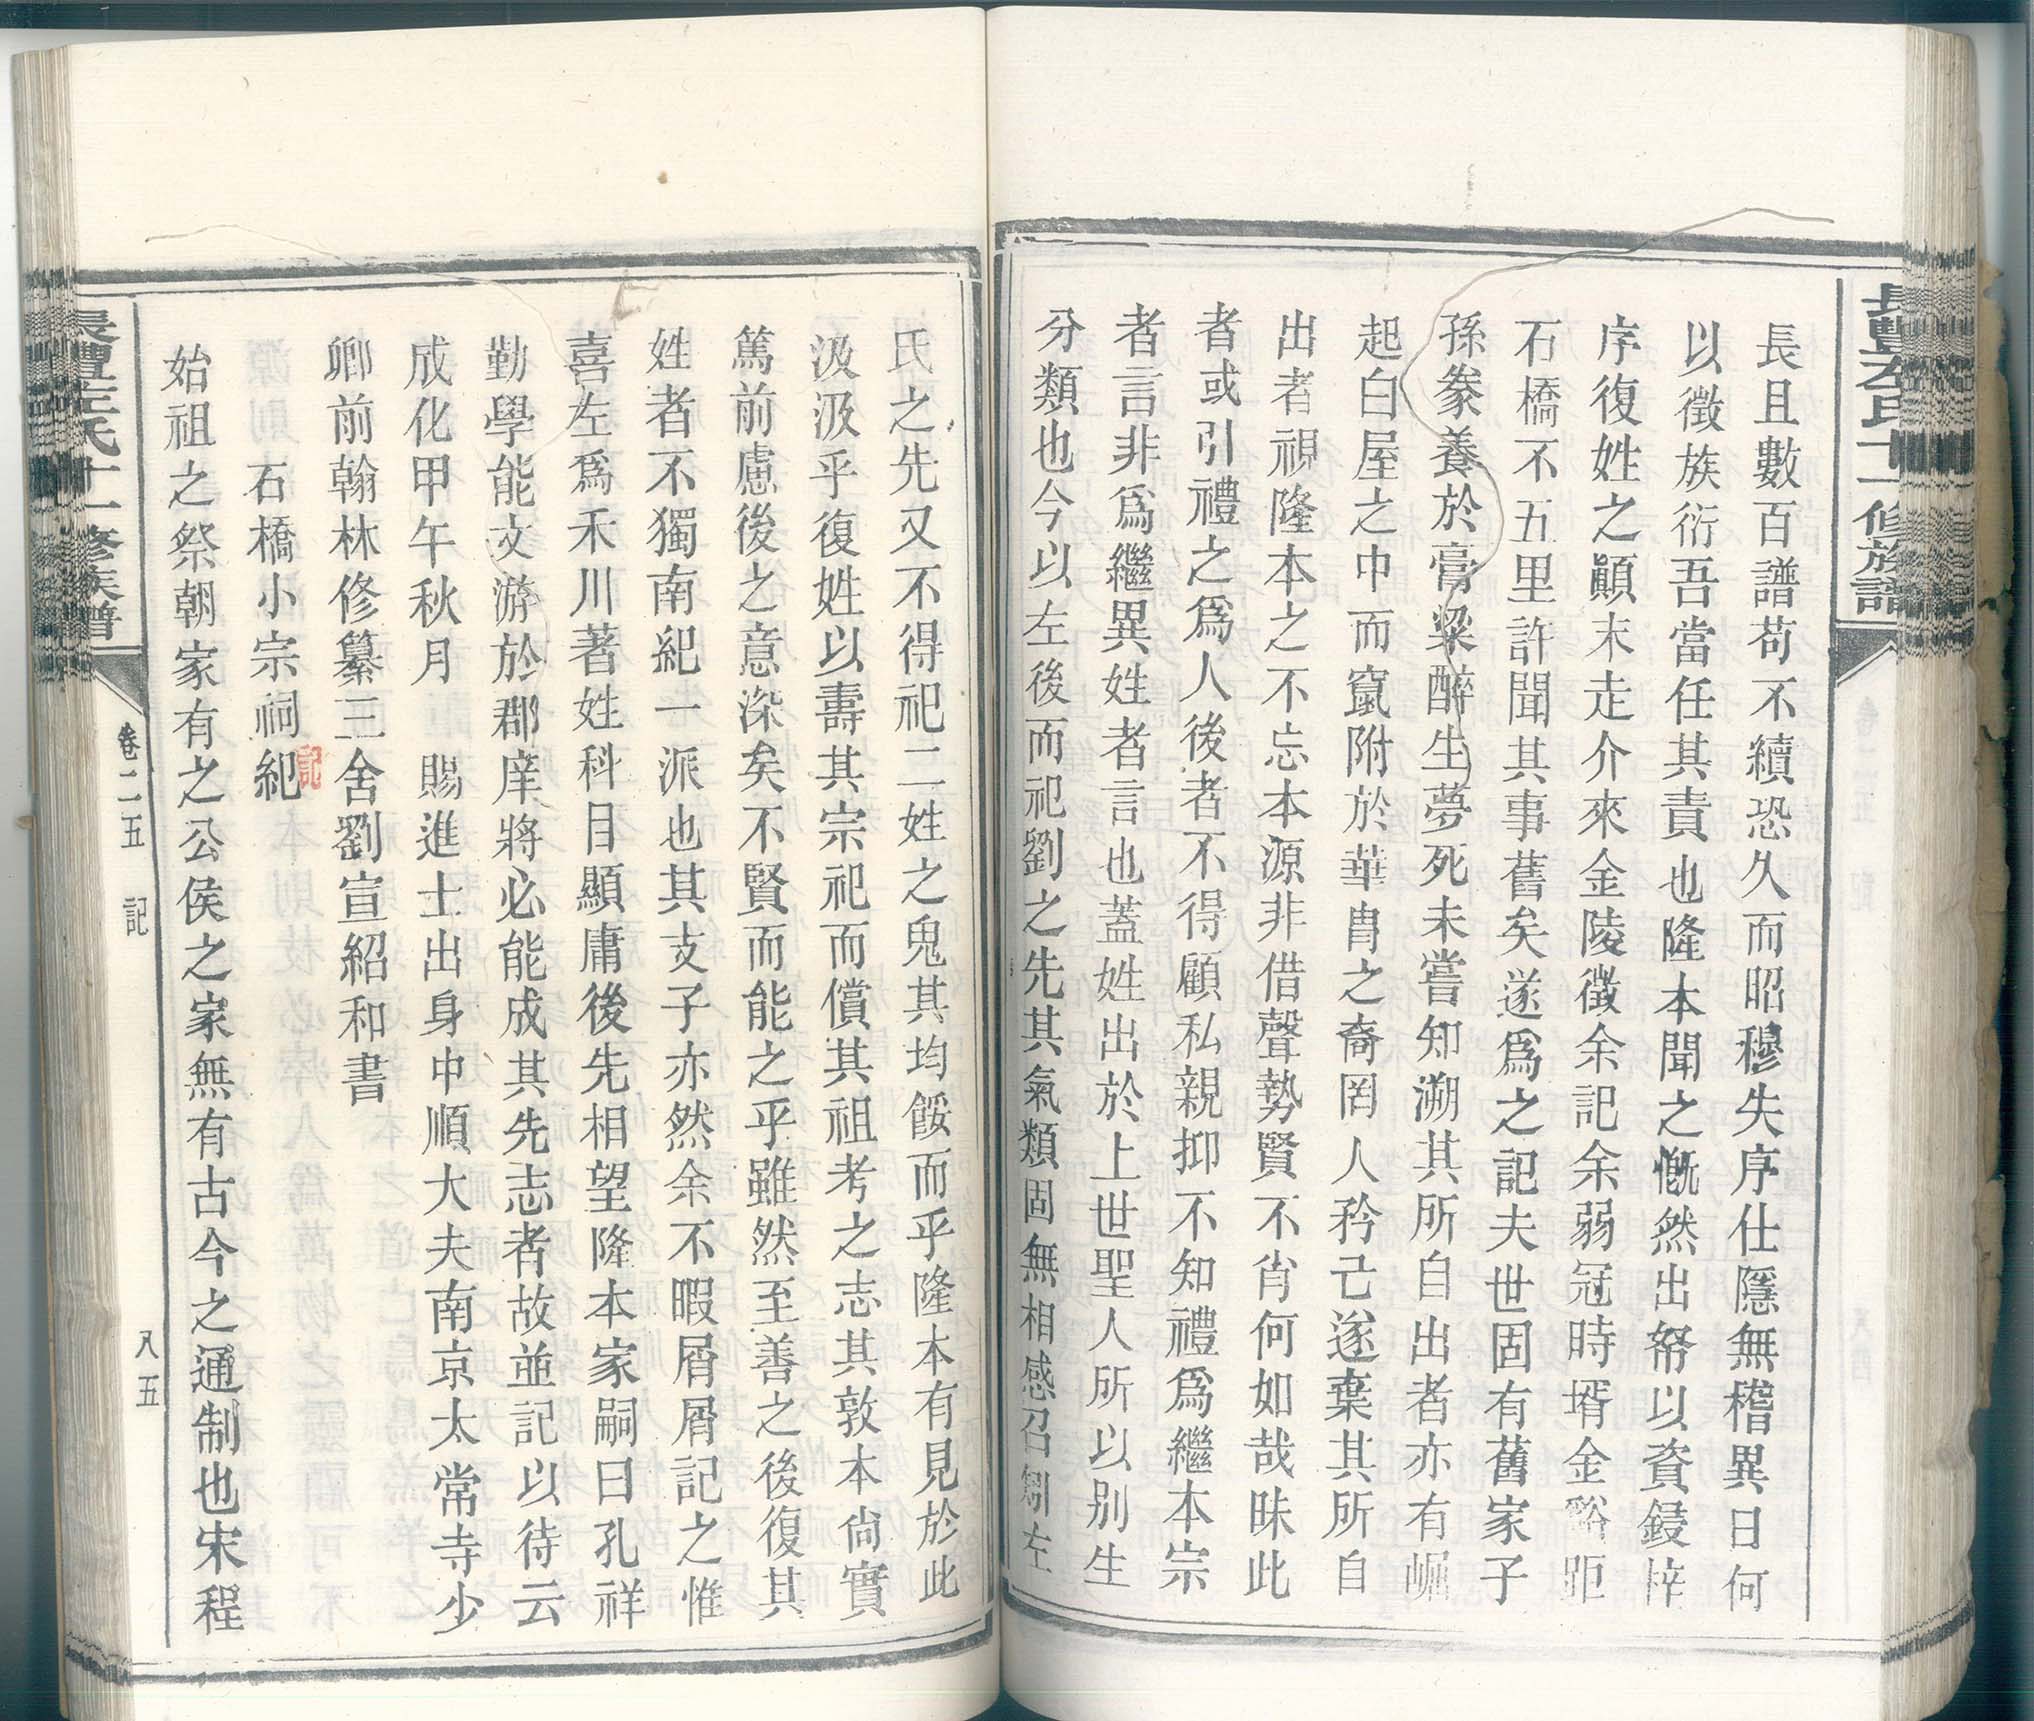 長豐左氏十一修族譜
長且數百譜苟不續恐久而昭穆失序仕隱無稽異日何
以徵族衍吾當任其責也隆本聞之慨然出帑以資鋟梓
序復姓之顚末走介來金陵徵余記余弱冠時壻金谿距
石橋不五里許聞其事舊矣遂爲之記夫世固有舊家子
孫豢養於膏粱醉生夢死未嘗知溯其所自出者亦有崛
起白屋之中而竄附於華胄之裔罔人矜己遂棄其所自
出者視隆本之不忘本源非借聲勢賢不肖何如哉昧此
者或引禮之爲人後者不得顧私親抑不知禮爲繼本宗
者言非爲繼異姓者言也蓋姓出於上世聖人所以别生
分類也今以左後而祀劉之先其氣類固無相感召矧左
氏之先又不得祀二姓之鬼其均餒而乎隆本有見於此
汲汲乎復姓以壽其宗祀而償其祖考之志其敦本尚實
篤前慮後之意深矣不賢而能之乎雖然至善之後復其
姓者不獨南紀一派也其支子亦然余不暇屑屑記之惟
喜左爲禾川著姓科目顯庸後先相望隆本家嗣曰孔祥
勤學能文游於郡庠將必能成其先志者故並記以待云
成化甲午秋月　賜進士出身中順大夫南京太常寺少
卿前翰林修纂三舍劉宣紹和書
石橋小宗祠紀
記
始祖之祭朝家有之公侯之家無有古今之通制也宋程
長豐左氏十一修族譜
卷二五　記
八五